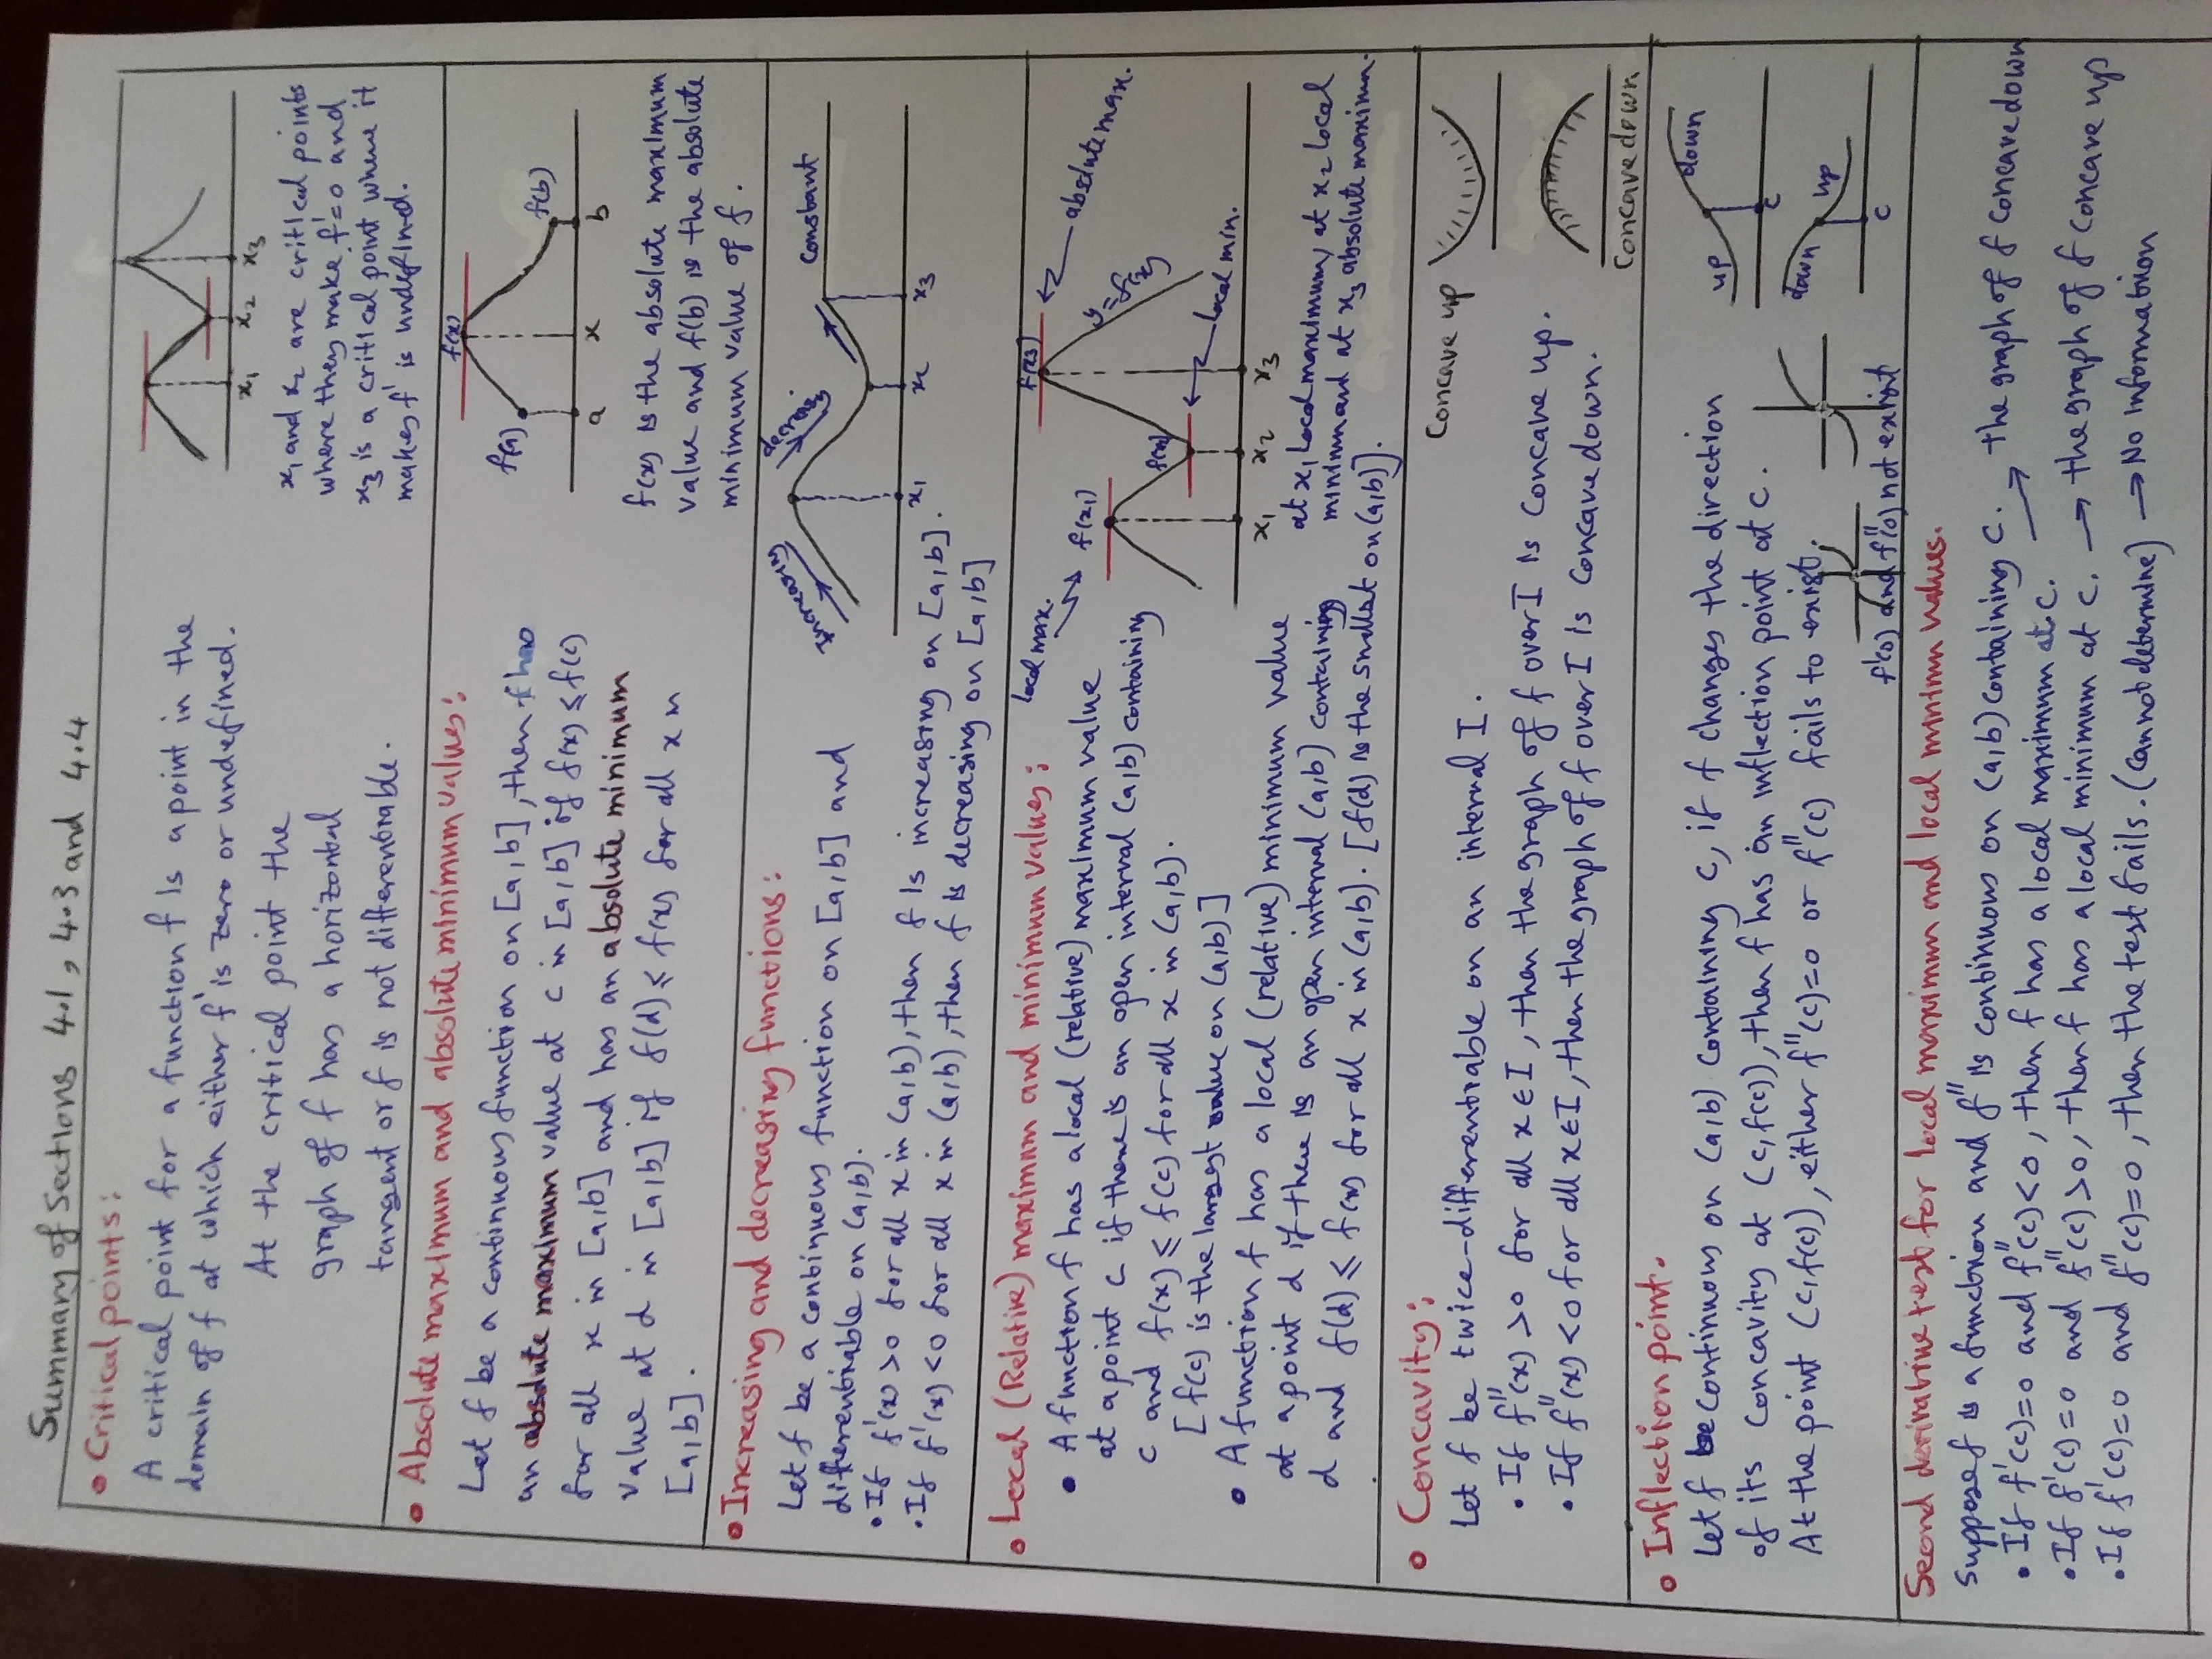 Summary of Sections 4.1, 4.3 and 4.4
• Critical points:
A critical point for a function f is a point in the
domain of f at which either f' is zero or undefined.
At the critical point the
graph of f has a horizontal
tangent or f is not differentiable.
x₁ x₂ x₃
x₁ and x₂ are critical points
where they make f'=0 and
x₃ is a critical point where it
makes f' is undefined.
• Absolute maximum and absolute minimum values:
Let f be a continuous function on [a,b], then f has
an absolute maximum value at c in [a,b] if f(x) ≤ f(c)
for all x in [a,b] and has an absolute minimum
value at d in [a,b] if f(d) ≤ f(x) for all x in
[a,b].
f(a) f(x) f(b)
a x b
f(x) is the absolute maximum
value and f(b) is the absolute
minimum value of f.
• Increasing and decreasing functions:
Let f be a continuous function on [a,b] and
differentiable on (a,b).
• If f'(x) >0 for all x in (a,b), then f is increasing on [a,b].
• If f'(x) <0 for all x in (a,b), then f is decreasing on [a,b]
increasing decreasing constant
x₁ x x₃
• Local (Relative) maximum and minimum values:
• A function f has a local (relative) maximum value
at a point c if there is an open interval (a,b) containing
c and f(x) ≤ f(c) for all x in (a,b).
[f(c) is the largest value on (a,b)]
• A function f has a local (relative) minimum value
at a point d if there is an open interval (a,b) containing
d and f(d) ≤ f(x) for all x in (a,b). [f(d) is the smallest on (a,b)].
local max. f(x₁) f(x₃) absolute max.
y=f(x)
local min.
x₁ x₂ x₃
at x₁ local maximum, at x₂ local
minimum and at x₃ absolute maximum.
• Concavity:
Let f be twice-differentiable on an interval I.
• If f''(x) >0 for all x∈I, then the graph of f over I is concave up.
• If f''(x) <0 for all x∈I, then the graph of f over I is concave down.
Concave up
Concave down
• Inflection point.
Let f be continuous on (a,b) containing c, if f changes the direction
of its concavity at (c,f(c)), then f has an inflection point at c.
At the point (c,f(c)), either f''(c)=0 or f''(c) fails to exist.
up down
c
down up
c
f'(0) and f''(0) not exist
Second derivative test for local maximum and local minimum values.
Suppose f is a function and f'' is continuous on (a,b) containing c.
• If f'(c)=0 and f''(c)<0, then f has a local maximum at c. → the graph of f concave down
• If f'(c)=0 and f''(c)>0, then f has a local minimum at c. → the graph of f concave up
• If f'(c)=0 and f''(c)=0, then the test fails. (cannot determine) → No information